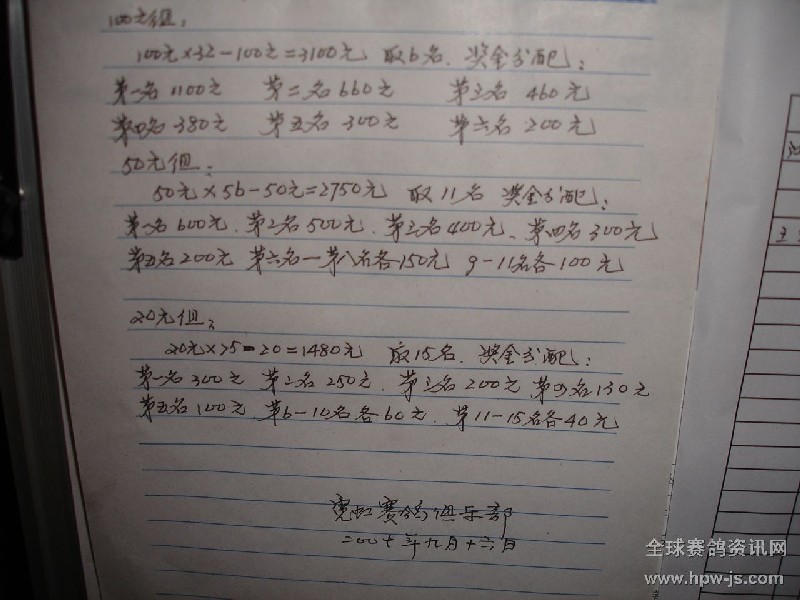 100元组:
100元×32-100元=3100元 取6名、奖金分配:
第一名1100元 第二名660元 第三名460元
第四名380元 第五名300元 第六名200元
50元组:
50元×56-50元=2750元 取11名 奖金分配:
第一名600元、第二名500元、第三名400元、第四名300元
第五名200元 第六名—第八名各150元 9-11名各100元
20元组:
20元×75-20=1480元 取15名、奖金分配:
第一名300元 第二名250元、第三名200元 第四名130元
第五名100元、第6-10名各60元、第11-15名各40元
霓虹赛鸽俱乐部
年九月十六日
全球赛鸽资讯网
www.hpw-js.com